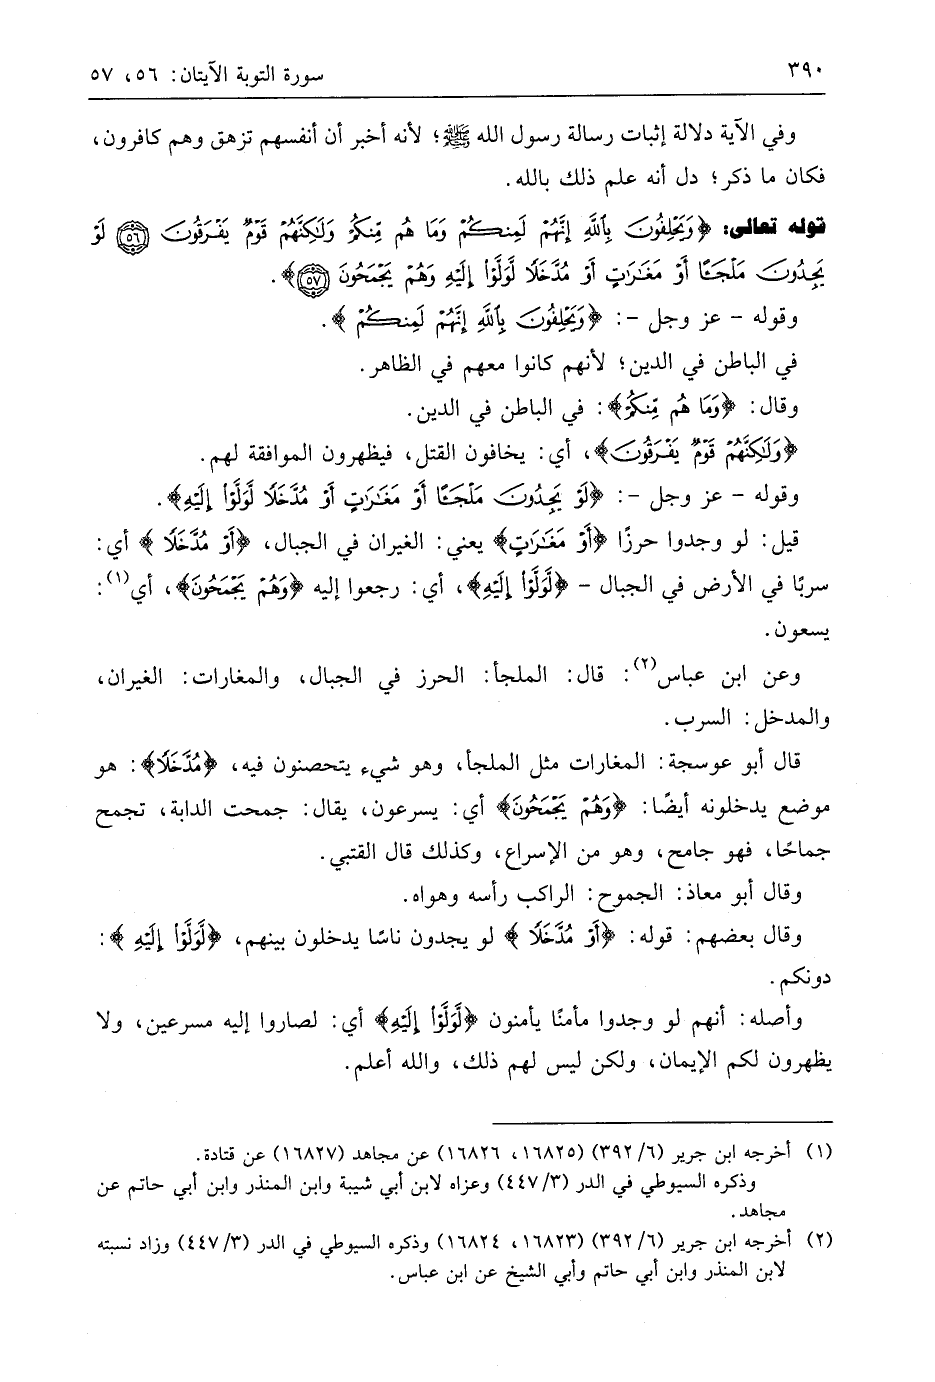 ٣٩٠
سورة التوبة الآيتان: ٥٦، ٥٧
وفي الآية دلالة إثبات رسالة رسول الله ﷺ؛ لأنه أخبر أن أنفسهم تزهق وهم كافرون،
فكان ما ذكر؛ دل أنه علم ذلك بالله.
قوله تعالى: ﴿وَيَحْلِفُونَ بِٱللَّهِ إِنَّهُمْ لَمِنكُمْ وَمَا هُم مِّنكُمْ وَلَٰكِنَّهُمْ قَوْمٌ يَفْرَقُونَ ٥٦ لَوْ
يَجِدُونَ مَلْجَـًٔا أَوْ مَغَٰرَٰتٍ أَوْ مُدَّخَلًا لَّوَلَّوْا۟ إِلَيْهِ وَهُمْ يَجْمَحُونَ ٥٧﴾.
وقوله - عز وجل -: ﴿وَيَحْلِفُونَ بِٱللَّهِ إِنَّهُمْ لَمِنكُمْ ﴾.
في الباطن في الدين؛ لأنهم كانوا معهم في الظاهر.
وقال: ﴿وَمَا هُم مِّنكُمْ﴾: في الباطن في الدين.
﴿وَلَٰكِنَّهُمْ قَوْمٌ يَفْرَقُونَ﴾، أي: يخافون القتل، فيظهرون الموافقة لهم.
وقوله - عز وجل -: ﴿لَوْ يَجِدُونَ مَلْجَـًٔا أَوْ مَغَٰرَٰتٍ أَوْ مُدَّخَلًا لَّوَلَّوْا۟ إِلَيْهِ﴾.
قيل: لو وجدوا حرزًا ﴿أَوْ مَغَٰرَٰتٍ﴾ يعني: الغيران في الجبال، ﴿أَوْ مُدَّخَلًا ﴾ أي:
سربًا في الأرض في الجبال - ﴿لَّوَلَّوْا۟ إِلَيْهِ﴾، أي: رجعوا إليه ﴿وَهُمْ يَجْمَحُونَ﴾، أي(١):
يسعون.
وعن ابن عباس(٢): قال: الملجأ: الحرز في الجبال، والمغارات: الغيران،
والمدخل: السرب.
قال أبو عوسجة: المغارات مثل الملجأ، وهو شيء يتحصنون فيه، ﴿مُدَّخَلًا﴾: هو
موضع يدخلونه أيضًا: ﴿وَهُمْ يَجْمَحُونَ﴾ أي: يسرعون، يقال: جمحت الدابة، تجمح
جماحًا، فهو جامح، وهو من الإسراع، وكذلك قال القتبي.
وقال أبو معاذ: الجموح: الراكب رأسه وهواه.
وقال بعضهم: قوله: ﴿أَوْ مُدَّخَلًا ﴾ لو يجدون ناسًا يدخلون بينهم، ﴿لَّوَلَّوْا۟ إِلَيْهِ ﴾:
دونكم.
وأصله: أنهم لو وجدوا مأمنًا يأمنون ﴿لَّوَلَّوْا۟ إِلَيْهِ﴾ أي: لصاروا إليه مسرعين، ولا
يظهرون لكم الإيمان، ولكن ليس لهم ذلك، والله أعلم.
(١) أخرجه ابن جرير (٣٩٢/٦) (١٦٨٢٥، ١٦٨٢٦) عن مجاهد (١٦٨٢٧) عن قتادة.
وذكره السيوطي في الدر (٤٤٧/٣) وعزاه لابن أبي شيبة وابن المنذر وابن أبي حاتم عن
مجاهد.
(٢) أخرجه ابن جرير (٣٩٢/٦) (١٦٨٢٣، ١٦٨٢٤) وذكره السيوطي في الدر (٤٤٧/٣) وزاد نسبته
لابن المنذر وابن أبي حاتم وأبي الشيخ عن ابن عباس.